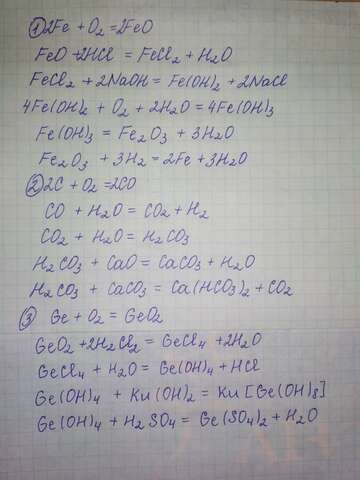 ① 2Fe + O₂ = 2FeO
FeO + 2HCl = FeCl₂ + H₂O
FeCl₂ + 2NaOH = Fe(OH)₂ + 2NaCl
4Fe(OH)₂ + O₂ + 2H₂O = 4Fe(OH)₃
Fe(OH)₃ = Fe₂O₃ + 3H₂O
Fe₂O₃ + 3H₂ = 2Fe + 3H₂O
② 2C + O₂ = 2CO
CO + H₂O = CO₂ + H₂
CO₂ + H₂O = H₂CO₃
H₂CO₃ + CaO = CaCO₃ + H₂O
H₂CO₃ + CaCO₃ = Ca(HCO₃)₂ + CO₂
③ Ge + O₂ = GeO₂
GeO₂ + 2H₂Cl₂ = GeCl₄ + 2H₂O
GeCl₄ + H₂O = Ge(OH)₄ + HCl
Ge(OH)₄ + Ku(OH)₂ = Ku[Ge(OH)₈]
Ge(OH)₄ + H₂SO₄ = Ge(SO₄)₂ + H₂O